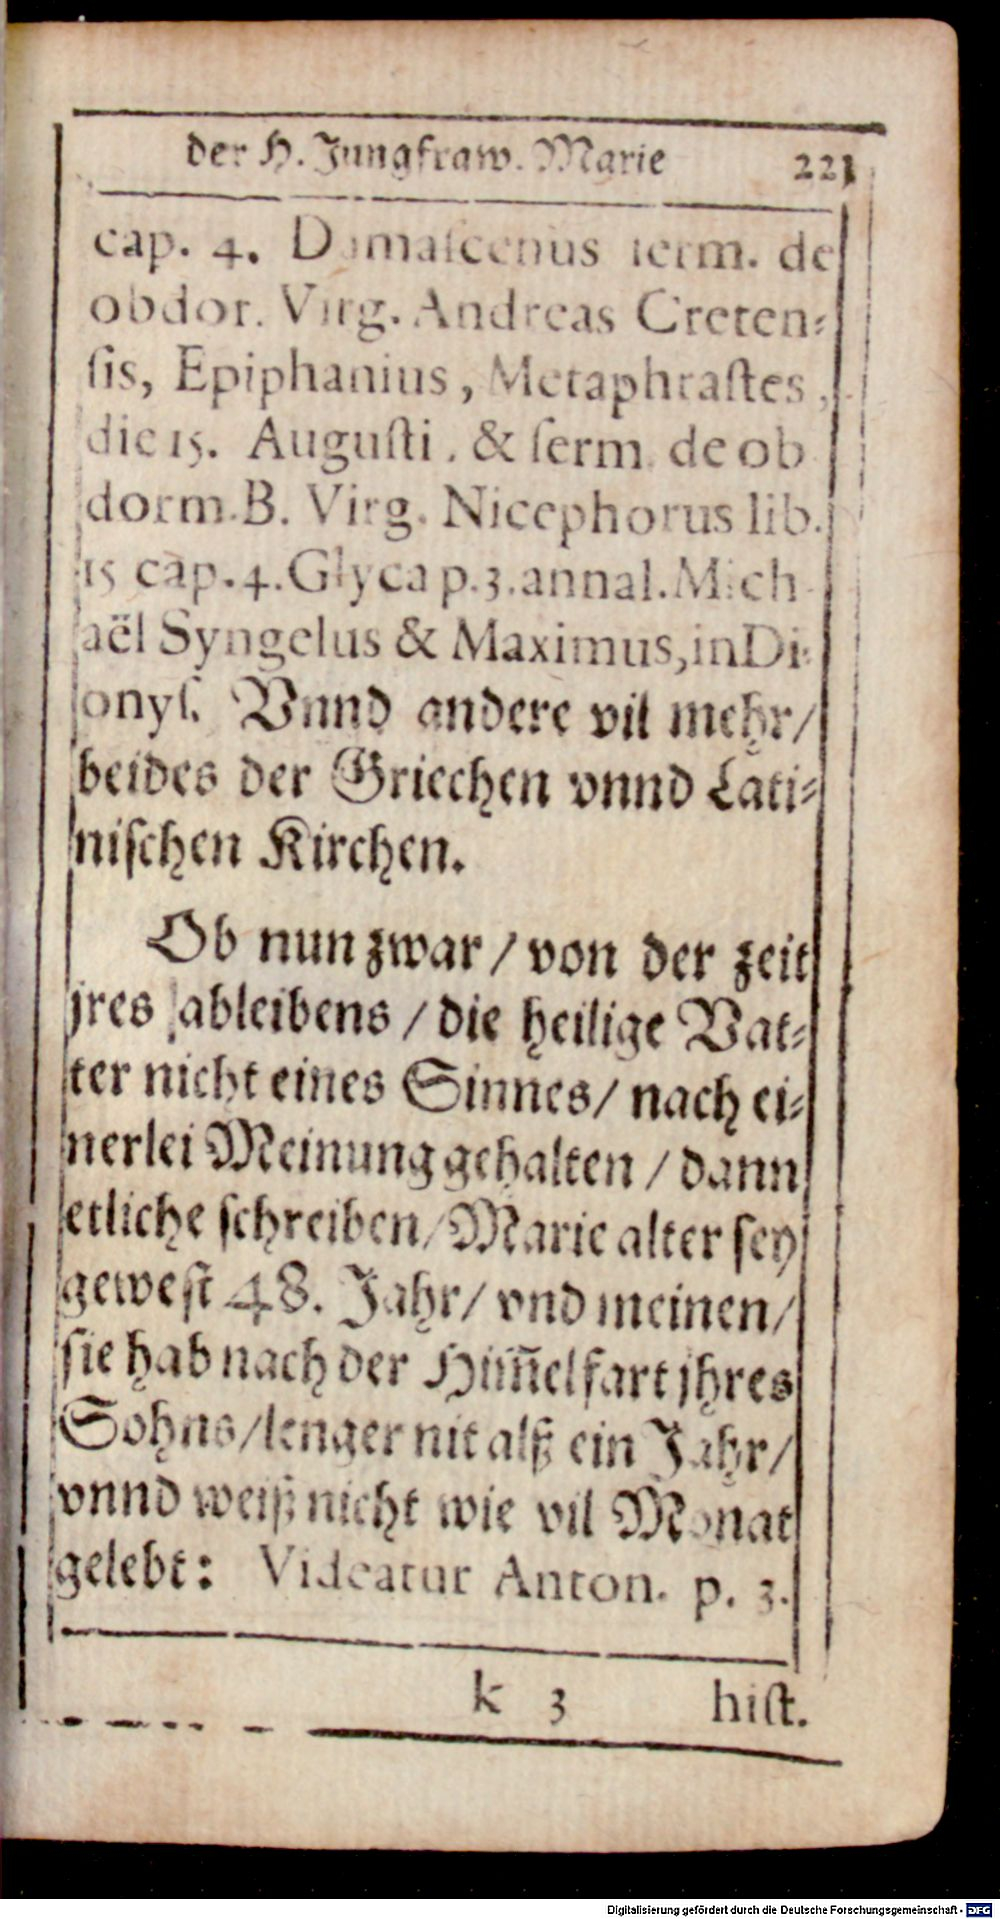 der H. Jungfraw. Marie 221
cap. 4. Damaſcenus ſerm. de
obdor. Virg. Andreas Creten-
ſis, Epiphanius, Metaphraſtes,
die 15. Auguſti. & ſerm. de ob
dorm. B. Virg. Nicephorus lib.
15 cap. 4. Glyca p. 3. annal. Mich
aël Syngelus & Maximus, in Di-
onyſ. Vnnd andere vil mehr/
beides der Griechen vnnd Lati-
niſchen Kirchen.
Ob nun zwar / von der zeit
jres ableibens / die heilige Vat-
ter nicht eines Sinnes/ nach ei-
nerlei Meinung gehalten / dann
etliche ſchreiben/ Marie alter ſey
geweſt 48. Jahr/ vnd meinen/
ſie hab nach der Him̃elfart jhres
Sohns/lenger nit alß ein Jahr/
vnnd weiß nicht wie vil Monat
gelebt: Videatur Anton. p. 3.
k 3 hiſt.
Digitalisierung gefördert durch die Deutsche Forschungsgemeinschaft - DFG